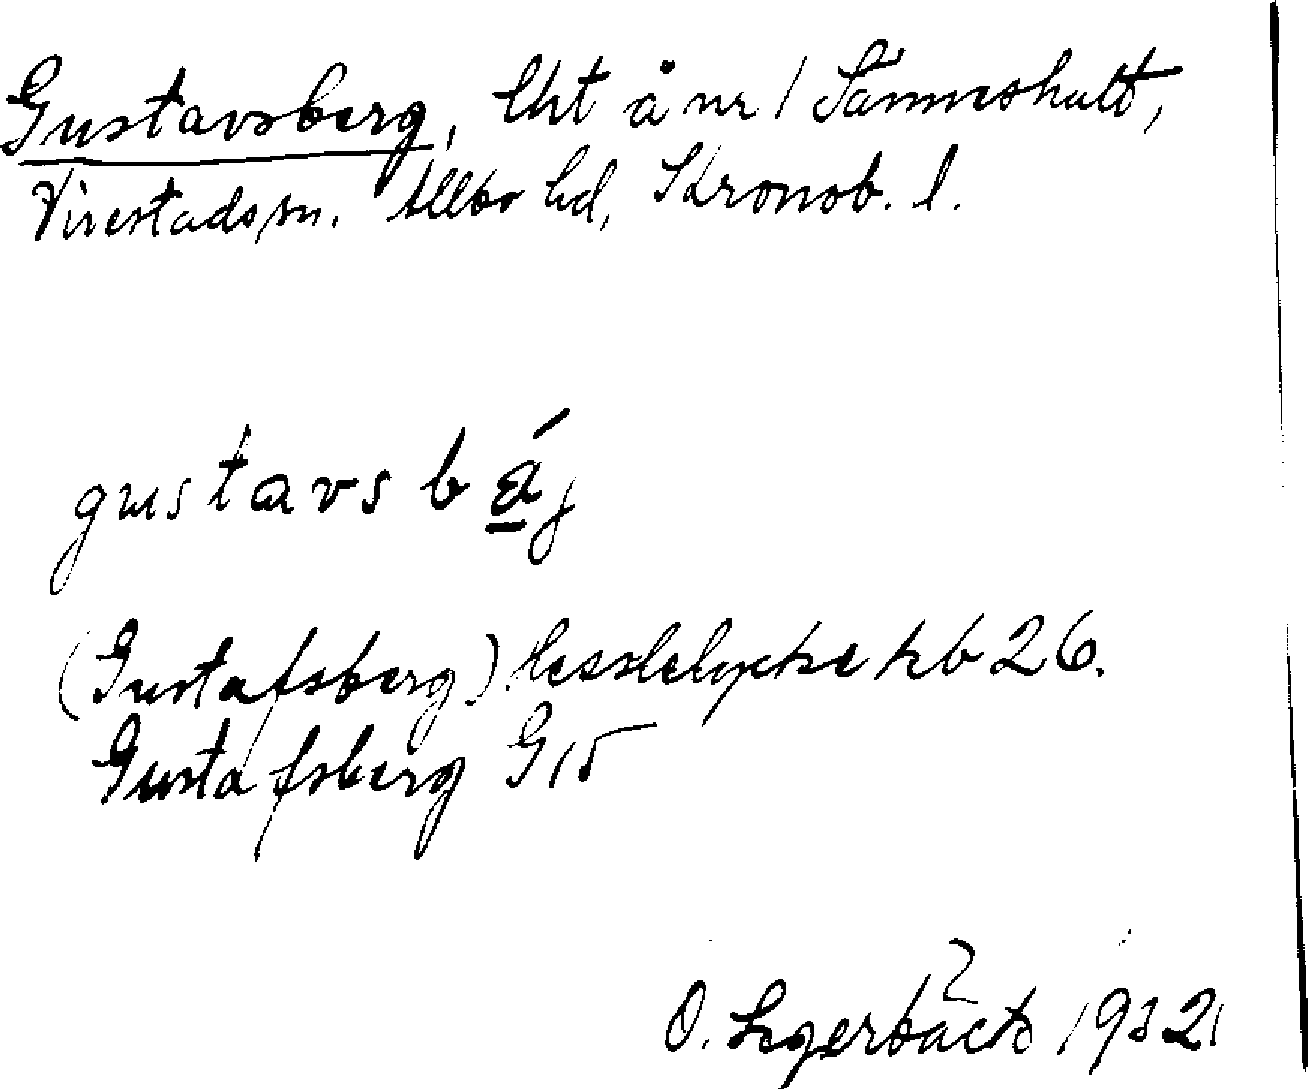 Gustavsberg, lht å nr 1 Sånneshult,
Virestads sn. Allbo hd, Kronob. l.
gustavs bä́j
(Gustafsberg) Hesslelycke kb 26.
Gustafsberg G15
O. Legerbäck 1932